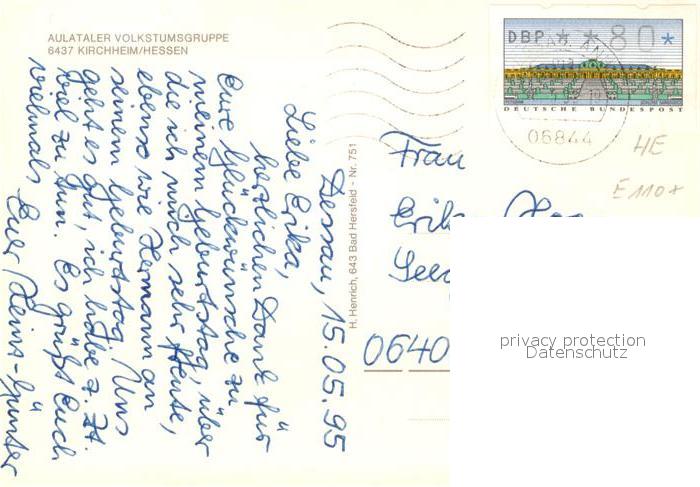 AULATALER VOLKSTUMSGRUPPE
6437 KIRCHHEIM/HESSEN
Dessau, 15.05.95
Liebe Erika,
herzlichen Dank für
Eure Glückwünsche zu
meinem Geburtstag, über
die ich mich sehr freute,
ebenso wie Hermann an
seinem Geburtstag. Uns
geht es gut, ich habe z. Zt.
viel zu tun. Es grüßt Euch
vielmals Euer Heinz-Günter
H. Henrich, 643 Bad Hersfeld - Nr. 751
DBP * * 80 *
DEUTSCHE BUNDESPOST
06844
HE
E110*
Frau
Erik
0640
privacy protection
Datenschutz